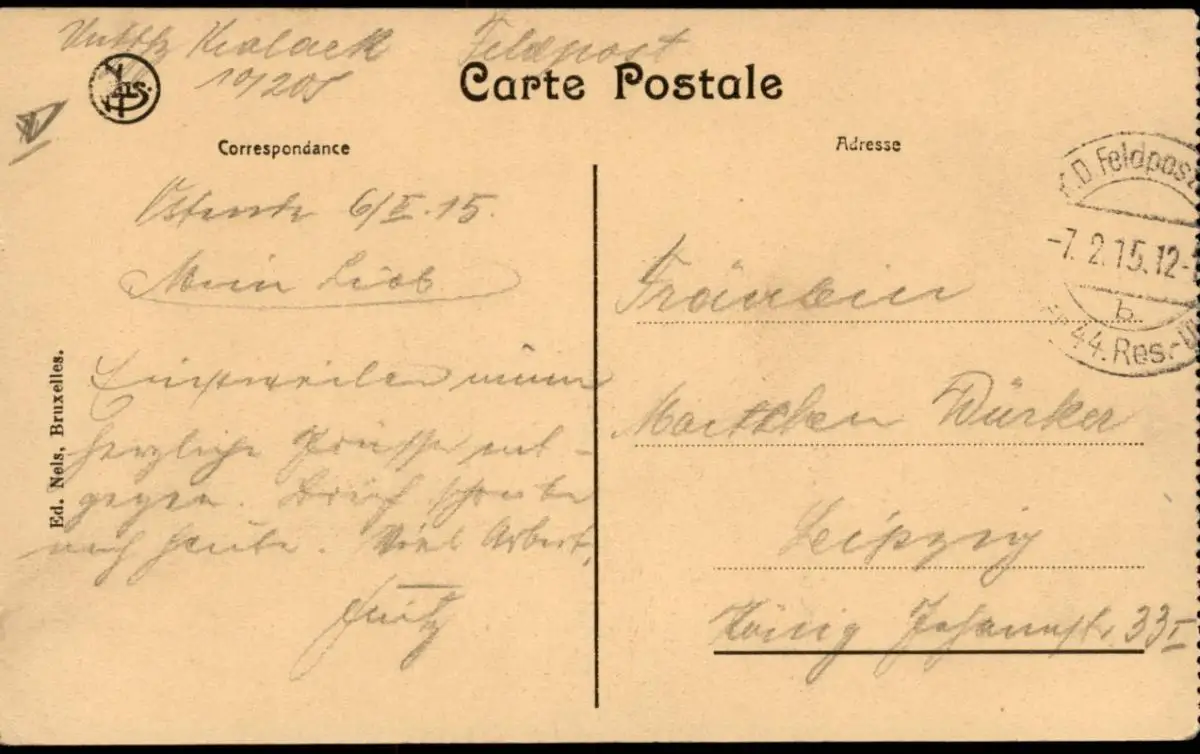 Feldpost
10/201
Carte Postale
Nels.
Correspondance
Adresse
K.D. Feldpost
-7. 2. 15. 12-
b
44. Res.-
Ostende 6/II. 15.
Mein Lieb
Einstweilen nimm
herzliche Grüsse ent-
gegen. Brief schreibe
noch heute. Viel Arbeit,
Fritz
Fräulein
Würker
Leipzig
König Johannstr. 33 I
Ed. Nels, Bruxelles.